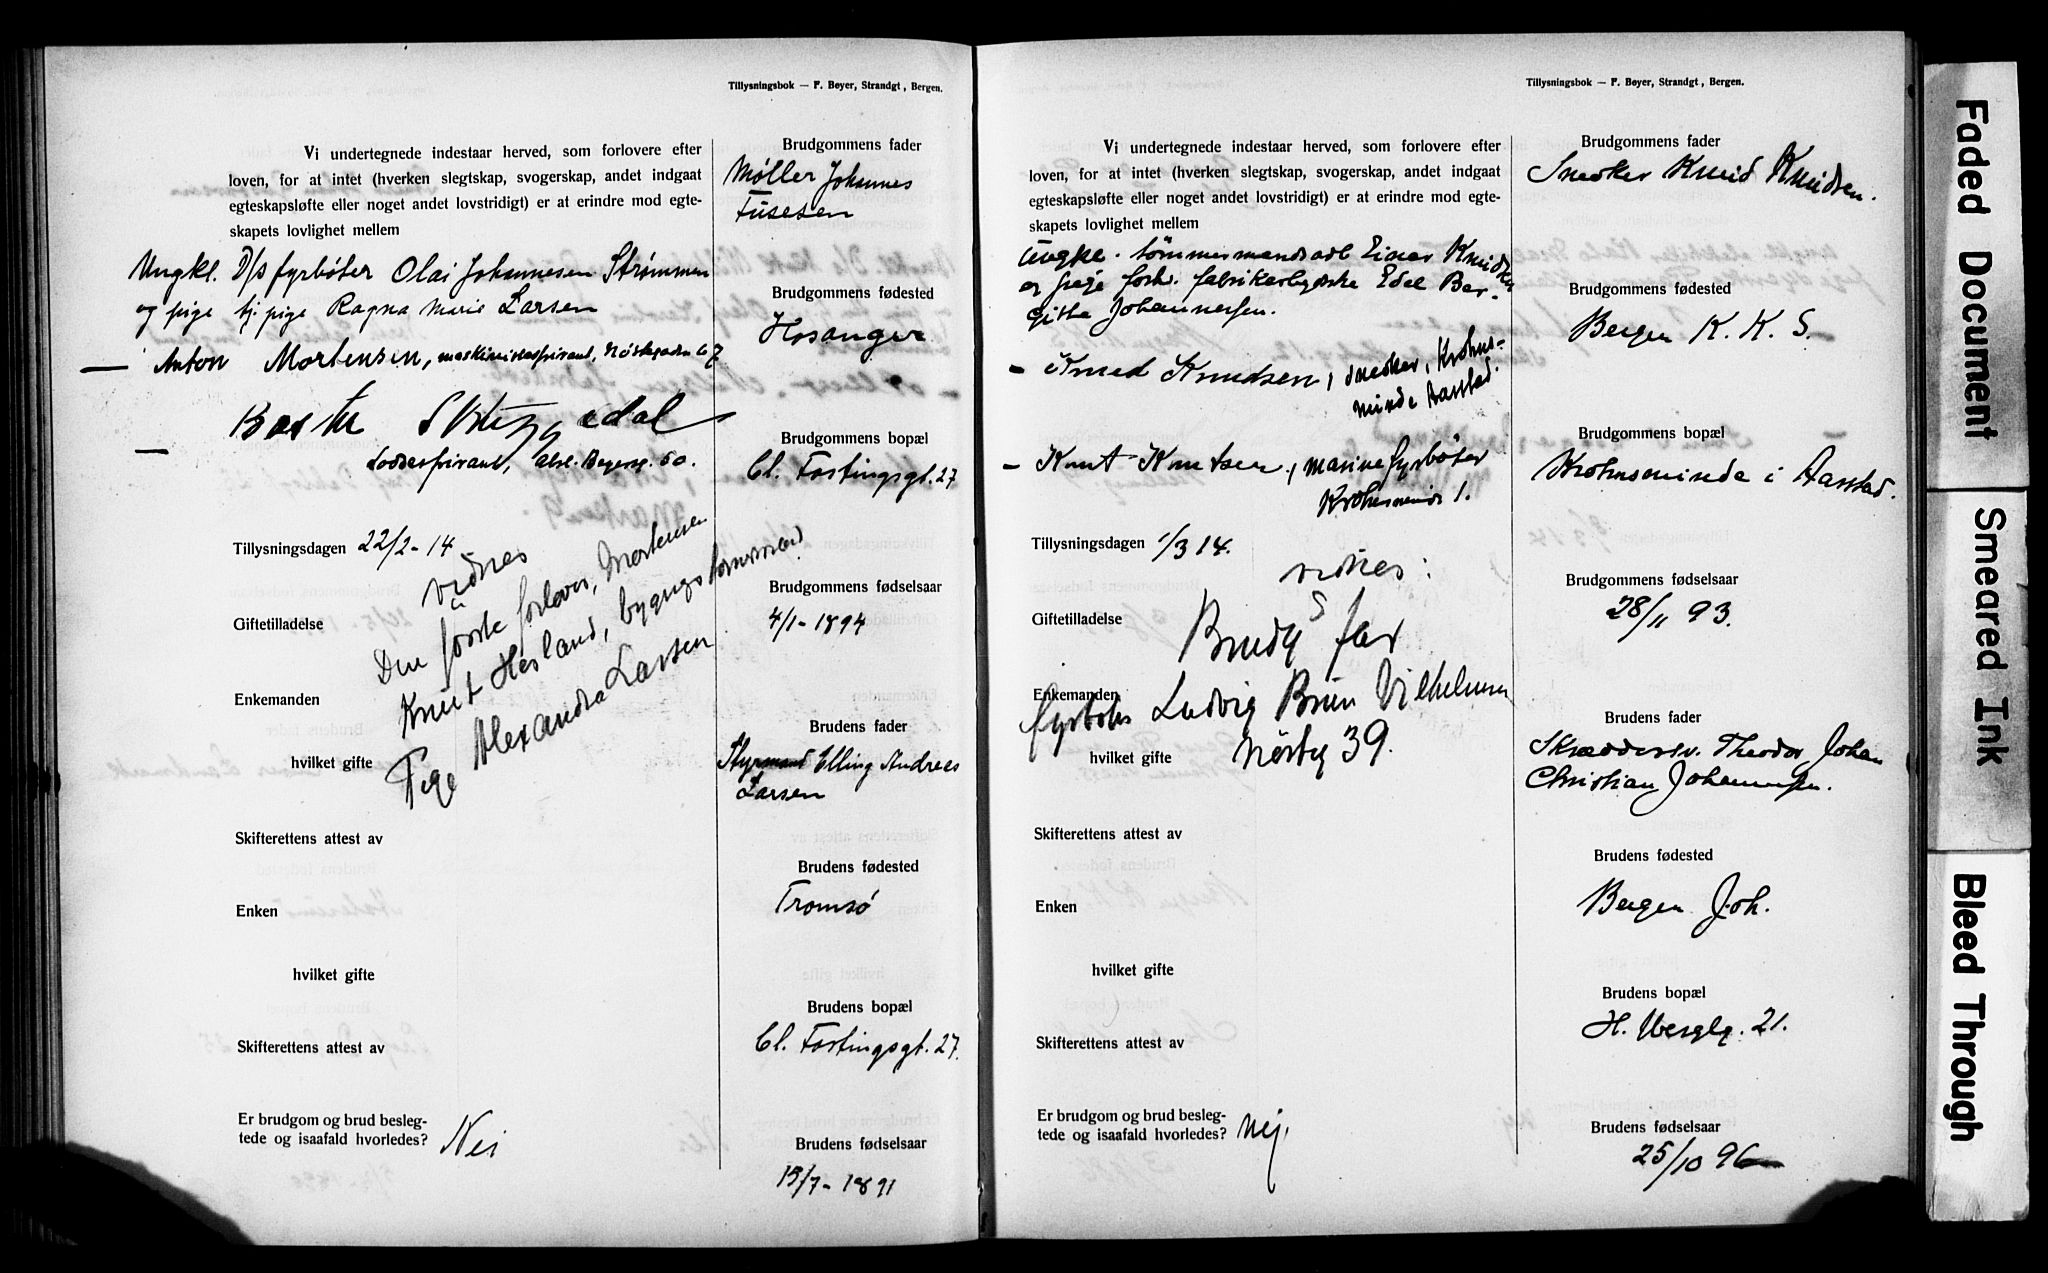 Tillysningsbok — F. Bøyer, Strandgt, Bergen.
Vi undertegnede indestaar herved, som forlovere efter
loven, for at intet (hverken slegtskap, svogerskap, andet indgaat
egteskapsløfte eller noget andet lovstridigt) er at erindre mod egte-
skapets lovlighet mellem
Ungkl. D/s fyrbøter Olai Johannesen Strømmen
og pige tj. pige Ragna Marie Larsen
— Anton Mortensen,
—
Tillysningsdagen 22/2-14
vidnes
Den første forlover, Mortensen
Giftetilladelse
Knut Hesland,
Enkemanden
Pige Alexandra Larsen
hvilket gifte
Skifterettens attest av
Enken
hvilket gifte
Skifterettens attest av
Er brudgom og brud besleg-
tede og isaafald hvorledes? Nei
Brudgommens fader
Møller Johannes
Brudgommens fødested
Hosanger
Brudgommens bopæl
Cl. Fastingsgt. 27
Brudgommens fødselsaar
4/1-1894
Brudens fader
Styrmand Elling Andreas
Larsen
Brudens fødested
Tromsö
Brudens bopæl
Cl. Fastingsgt. 27.
Brudens fødselsaar
13/7-1891
Tillysningsbok — F. Bøyer, Strandgt, Bergen.
Vi undertegnede indestaar herved, som forlovere efter
loven, for at intet (hverken slegtskap, svogerskap, andet indgaat
egteskapsløfte eller noget andet lovstridigt) er at erindre mod egte-
skapets lovlighet mellem
Ungke. tömmermandsadl Einar Knudsen
og pige forh. fabrikarbeiderske Edel Ber-
gitte Johannesen.
- Knud Knudsen, snedker, Krohns-
minde Aarstad.
- Knut Knutsen, marinefyrbøter
Krohnsminde 1.
Tillysningsdagen 1/3 14.
vidnes:
Giftetilladelse
Brudg s far
Enkemanden
fyrbøter Ludvig Brun Vilhelmsen
hvilket gifte
Nøstg 39.
Skifterettens attest av
Enken
hvilket gifte
Skifterettens attest av
Er brudgom og brud besleg-
tede og isaafald hvorledes? Nej.
Brudgommens fader
Snedker Knud Knudsen.
Brudgommens fødested
Bergen K. K. S.
Brudgommens bopæl
Krohnsminde i Aarstad.
Brudgommens fødselsaar
28/11 93.
Brudens fader
Skræddersv. Theodor Johan
Christian Johannesen.
Brudens fødested
Bergen Joh.
Brudens bopæl
21.
Brudens fødselsaar
25/10 96
Faded Document
Smeared Ink
Bleed Through